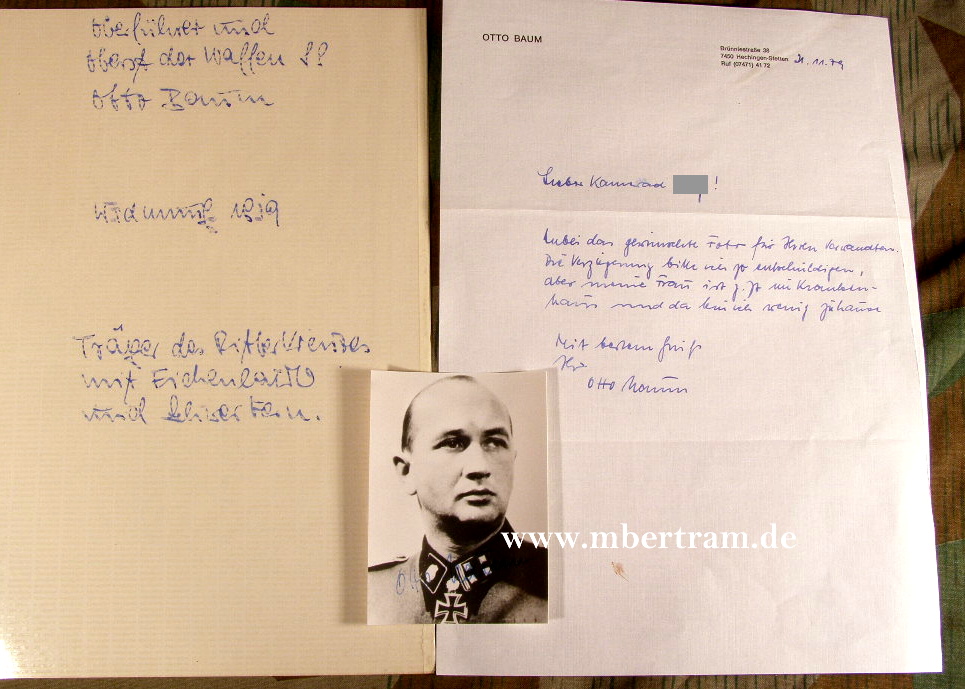 Oberführer und
Oberst der Waffen SS
Otto Baum
Widmung 1979
Träger des Ritterkreuzes
mit Eichenlaub
und Schwertern.
OTTO BAUM
Brünnlestraße 38
7450 Hechingen-Stetten
Ruf (07471) 41 72
21.11.79
Lieber Kamerad !
Anbei das gewünschte Foto für Ihren Verwandten.
Die Verzögerung bitte ich zu entschuldigen,
aber meine Frau ist z.Zt. im Kranken-
haus und da bin ich wenig zuhause
Mit bestem Gruß
Ihr
Otto Baum
www.mbertram.de